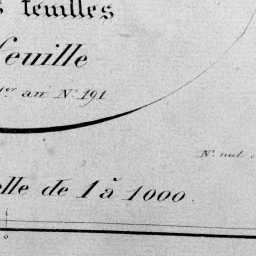 s feuilles
feuille
1er au N. 191
N. nut
elle de 1 à 1000.
0